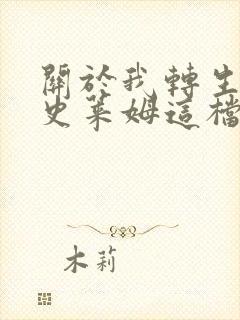 關於我轉生
史萊姆這檔
木莉